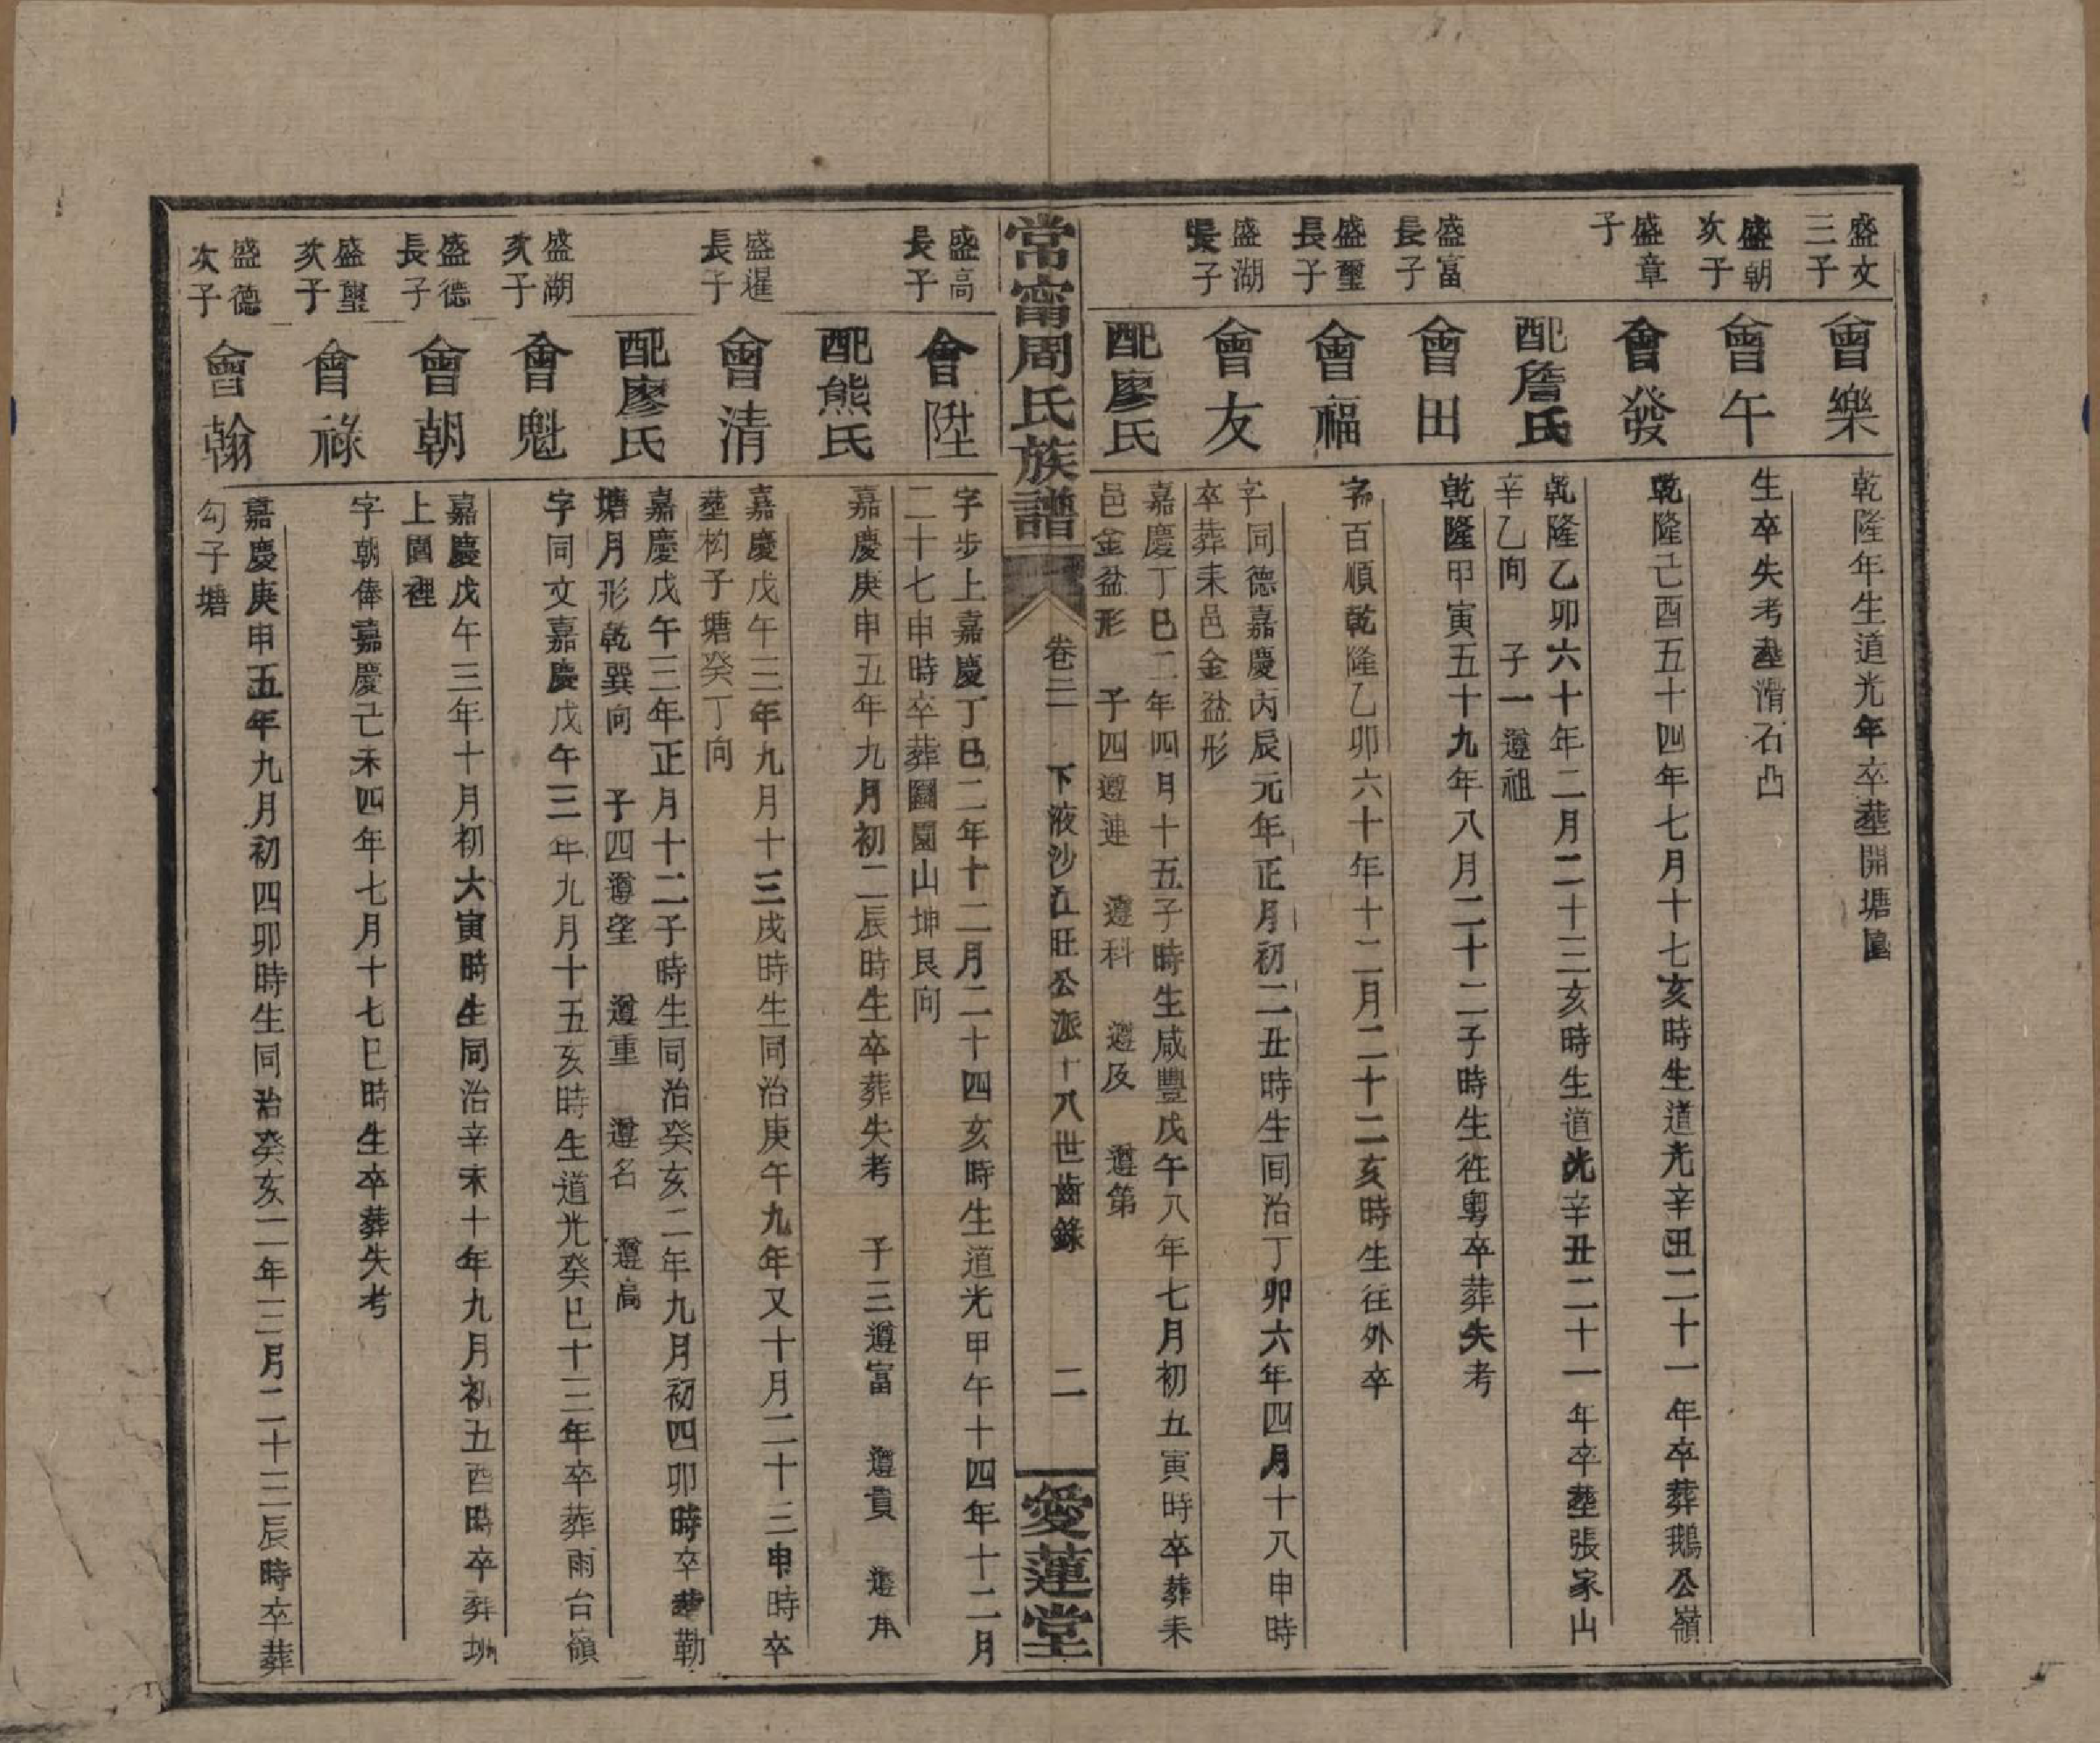 盛文
三子
會樂
乾隆年生道光年卒塟開塘
盛朝
次子
會午
生卒失考塟滑石凸
盛章
子
會發
乾隆己酉五十四年七月十七亥時生道光辛丑二十一年卒葬鵝公嶺
配詹氏
乾隆乙卯六十年二月二十三亥時生道光辛丑二十一年卒塟張家山
辛乙向 子一遵祖
盛富
長子
會田
乾隆甲寅五十九年八月二十二子時生往粵卒葬失考
盛璽
長子
會福
字百順乾隆乙卯六十年十二月二十二亥時生往外卒
盛湖
長子
會友
字同德嘉慶丙辰元年正月初二丑時生同治丁卯六年四月十八申時
卒葬耒邑金盆形
配廖氏
嘉慶丁巳二年四月十五子時生咸豐戊午八年七月初五寅時卒葬耒
邑金盆形 子四遵連 遵科 遵及 遵第
常甯周氏族譜
卷三 下液沙江旺公派十八世齒錄 二
愛蓮堂
盛高
長子
會陞
字步上嘉慶丁巳二年十二月二十四亥時生道光甲午十四年十二月
二十七申時卒葬園山坤艮向
配熊氏
嘉慶庚申五年九月初二辰時生卒葬失考 子三遵富 遵貴 遵
盛暹
長子
會清
嘉慶戊午三年九月十三戌時生同治庚午九年又十月二十三申時卒
塟构子塘癸丁向
配廖氏
嘉慶戊午三年正月十二子時生同治癸亥二年九月初四卯時卒葬勒
塘月形乾巽向 子四遵望 遵重 遵名 遵高
盛湖
次子
會魁
字同文嘉慶戊午三年九月十五亥時生道光癸巳十三年卒葬雨台嶺
盛德
長子
會朝
嘉慶戊午三年十月初六寅時生同治辛未十年九月初五酉時卒葬圳
上園裡
盛璽
次子
會祿
字朝俸嘉慶己未四年七月十七巳時生卒葬失考
盛德
次子
會翰
嘉慶庚申五年九月初四卯時生同治癸亥二年三月二十三辰時卒葬
勾子塘